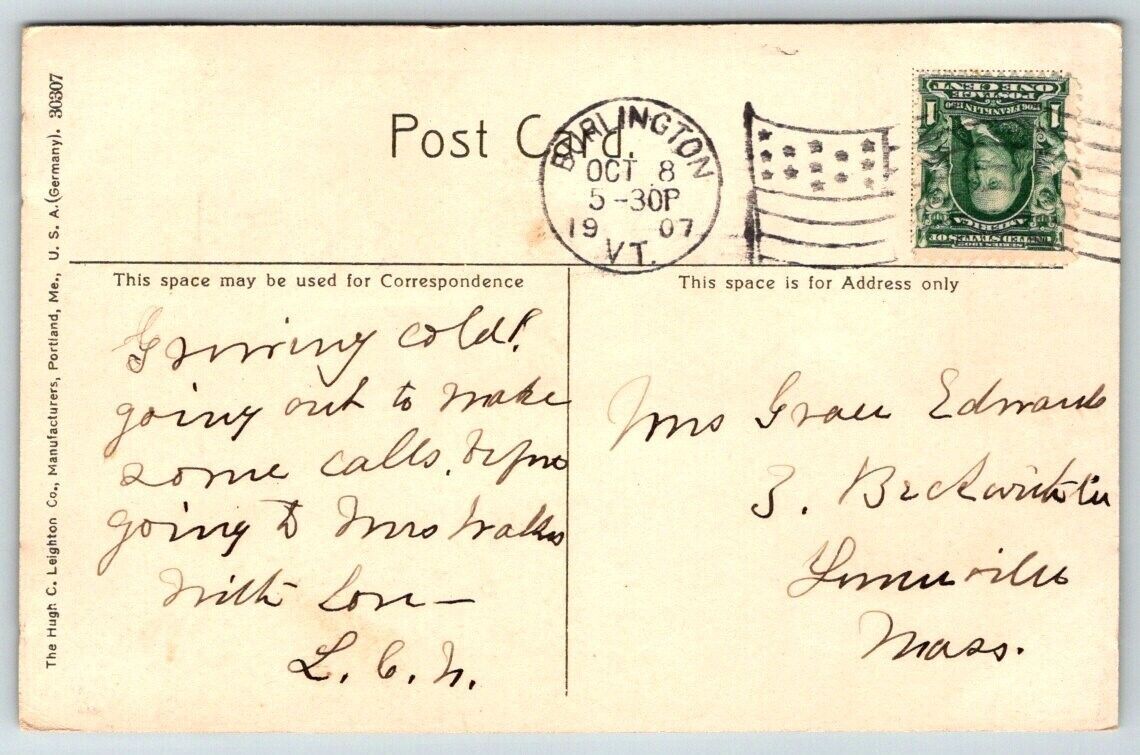 Post Card.
BURLINGTON
OCT 8
5-30P
1907
VT.
1 POSTAGE 1
ONE CENT
1706 FRANKLIN 1790
SERIES 1902
UNITED STATES OF
AMERICA
This space may be used for Correspondence
This space is for Address only
The Hugh C. Leighton Co., Manufacturers, Portland, Me., U. S. A. (Germany). 30307
Growing cold!
going out to make
some calls, before
going to Mrs
With Love—
L. C. N.
Mrs Grace Edwards
3.
Mass.